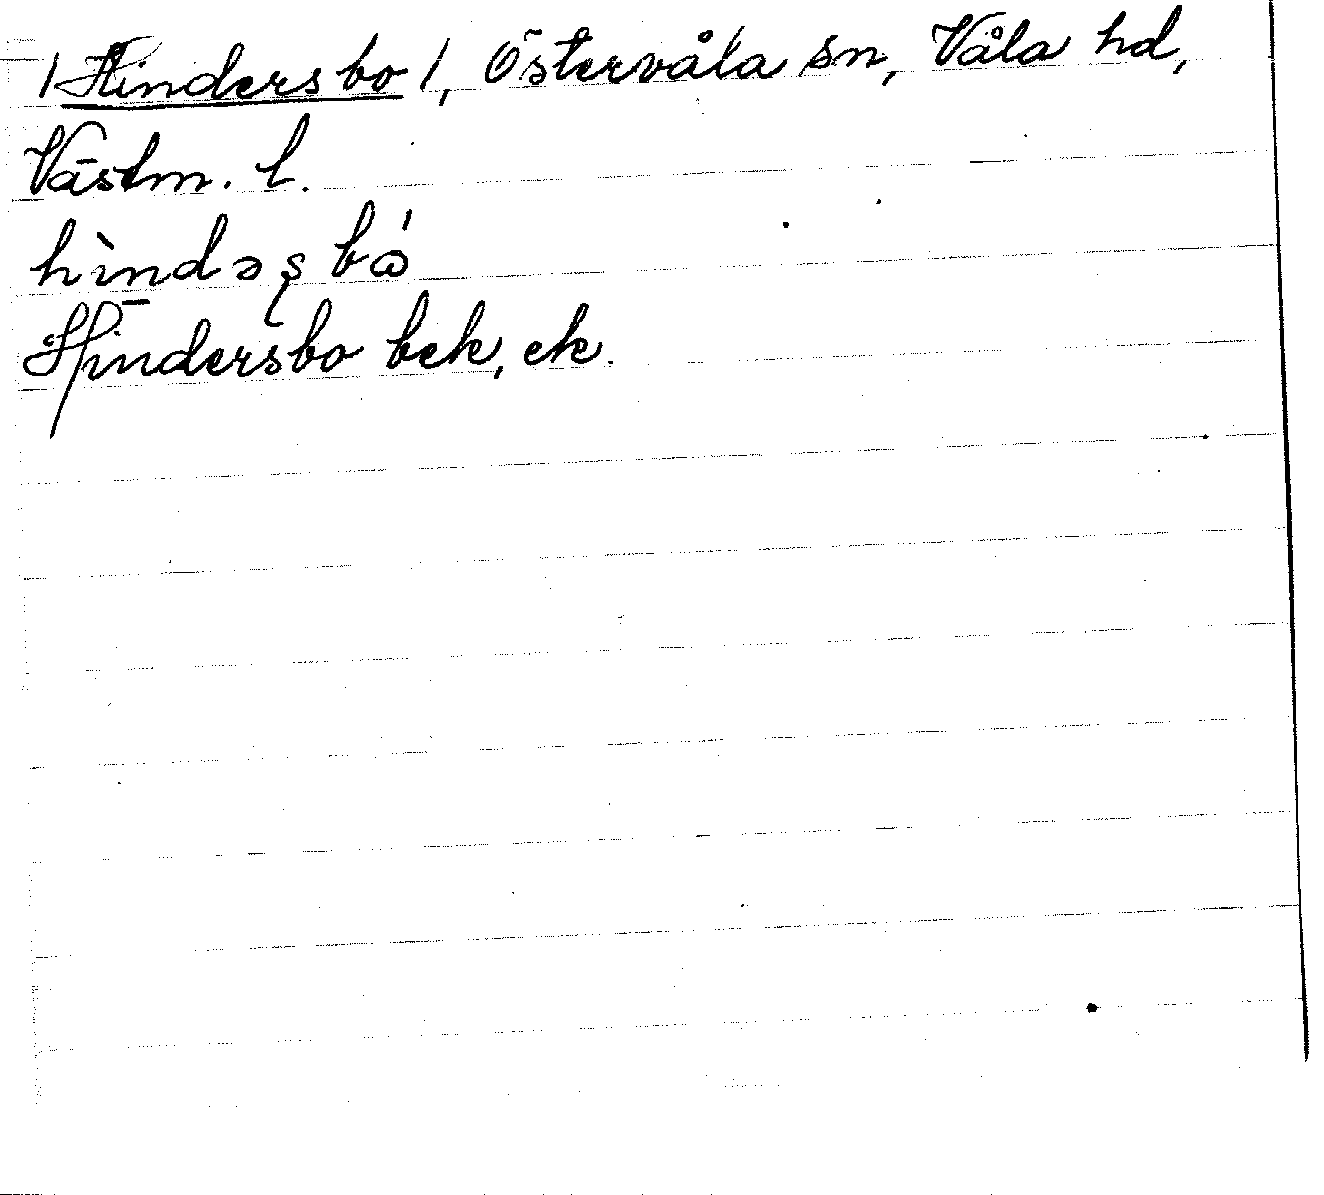 /Hindersbo/, Östervåla sn, Våla hd,
Västm. l.
hìndəʂbó
Hindersbo bek, ek.